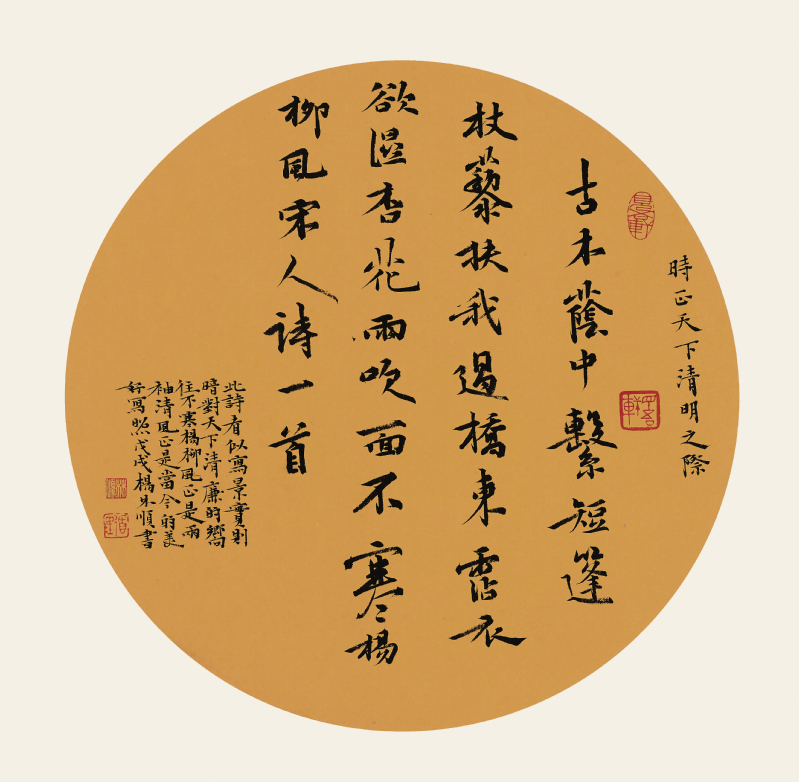 時正天下清明之際
古木蔭中繫短篷
杖藜扶我過橋東霑衣
欲湿杏花雨吹面不寒楊
柳風宋人詩一首
此詩看似寫景實則
暗對天下清廉的嚮
往不寒楊柳風正是兩
袖清風正是當今的美
好寫照戊戌楊順書